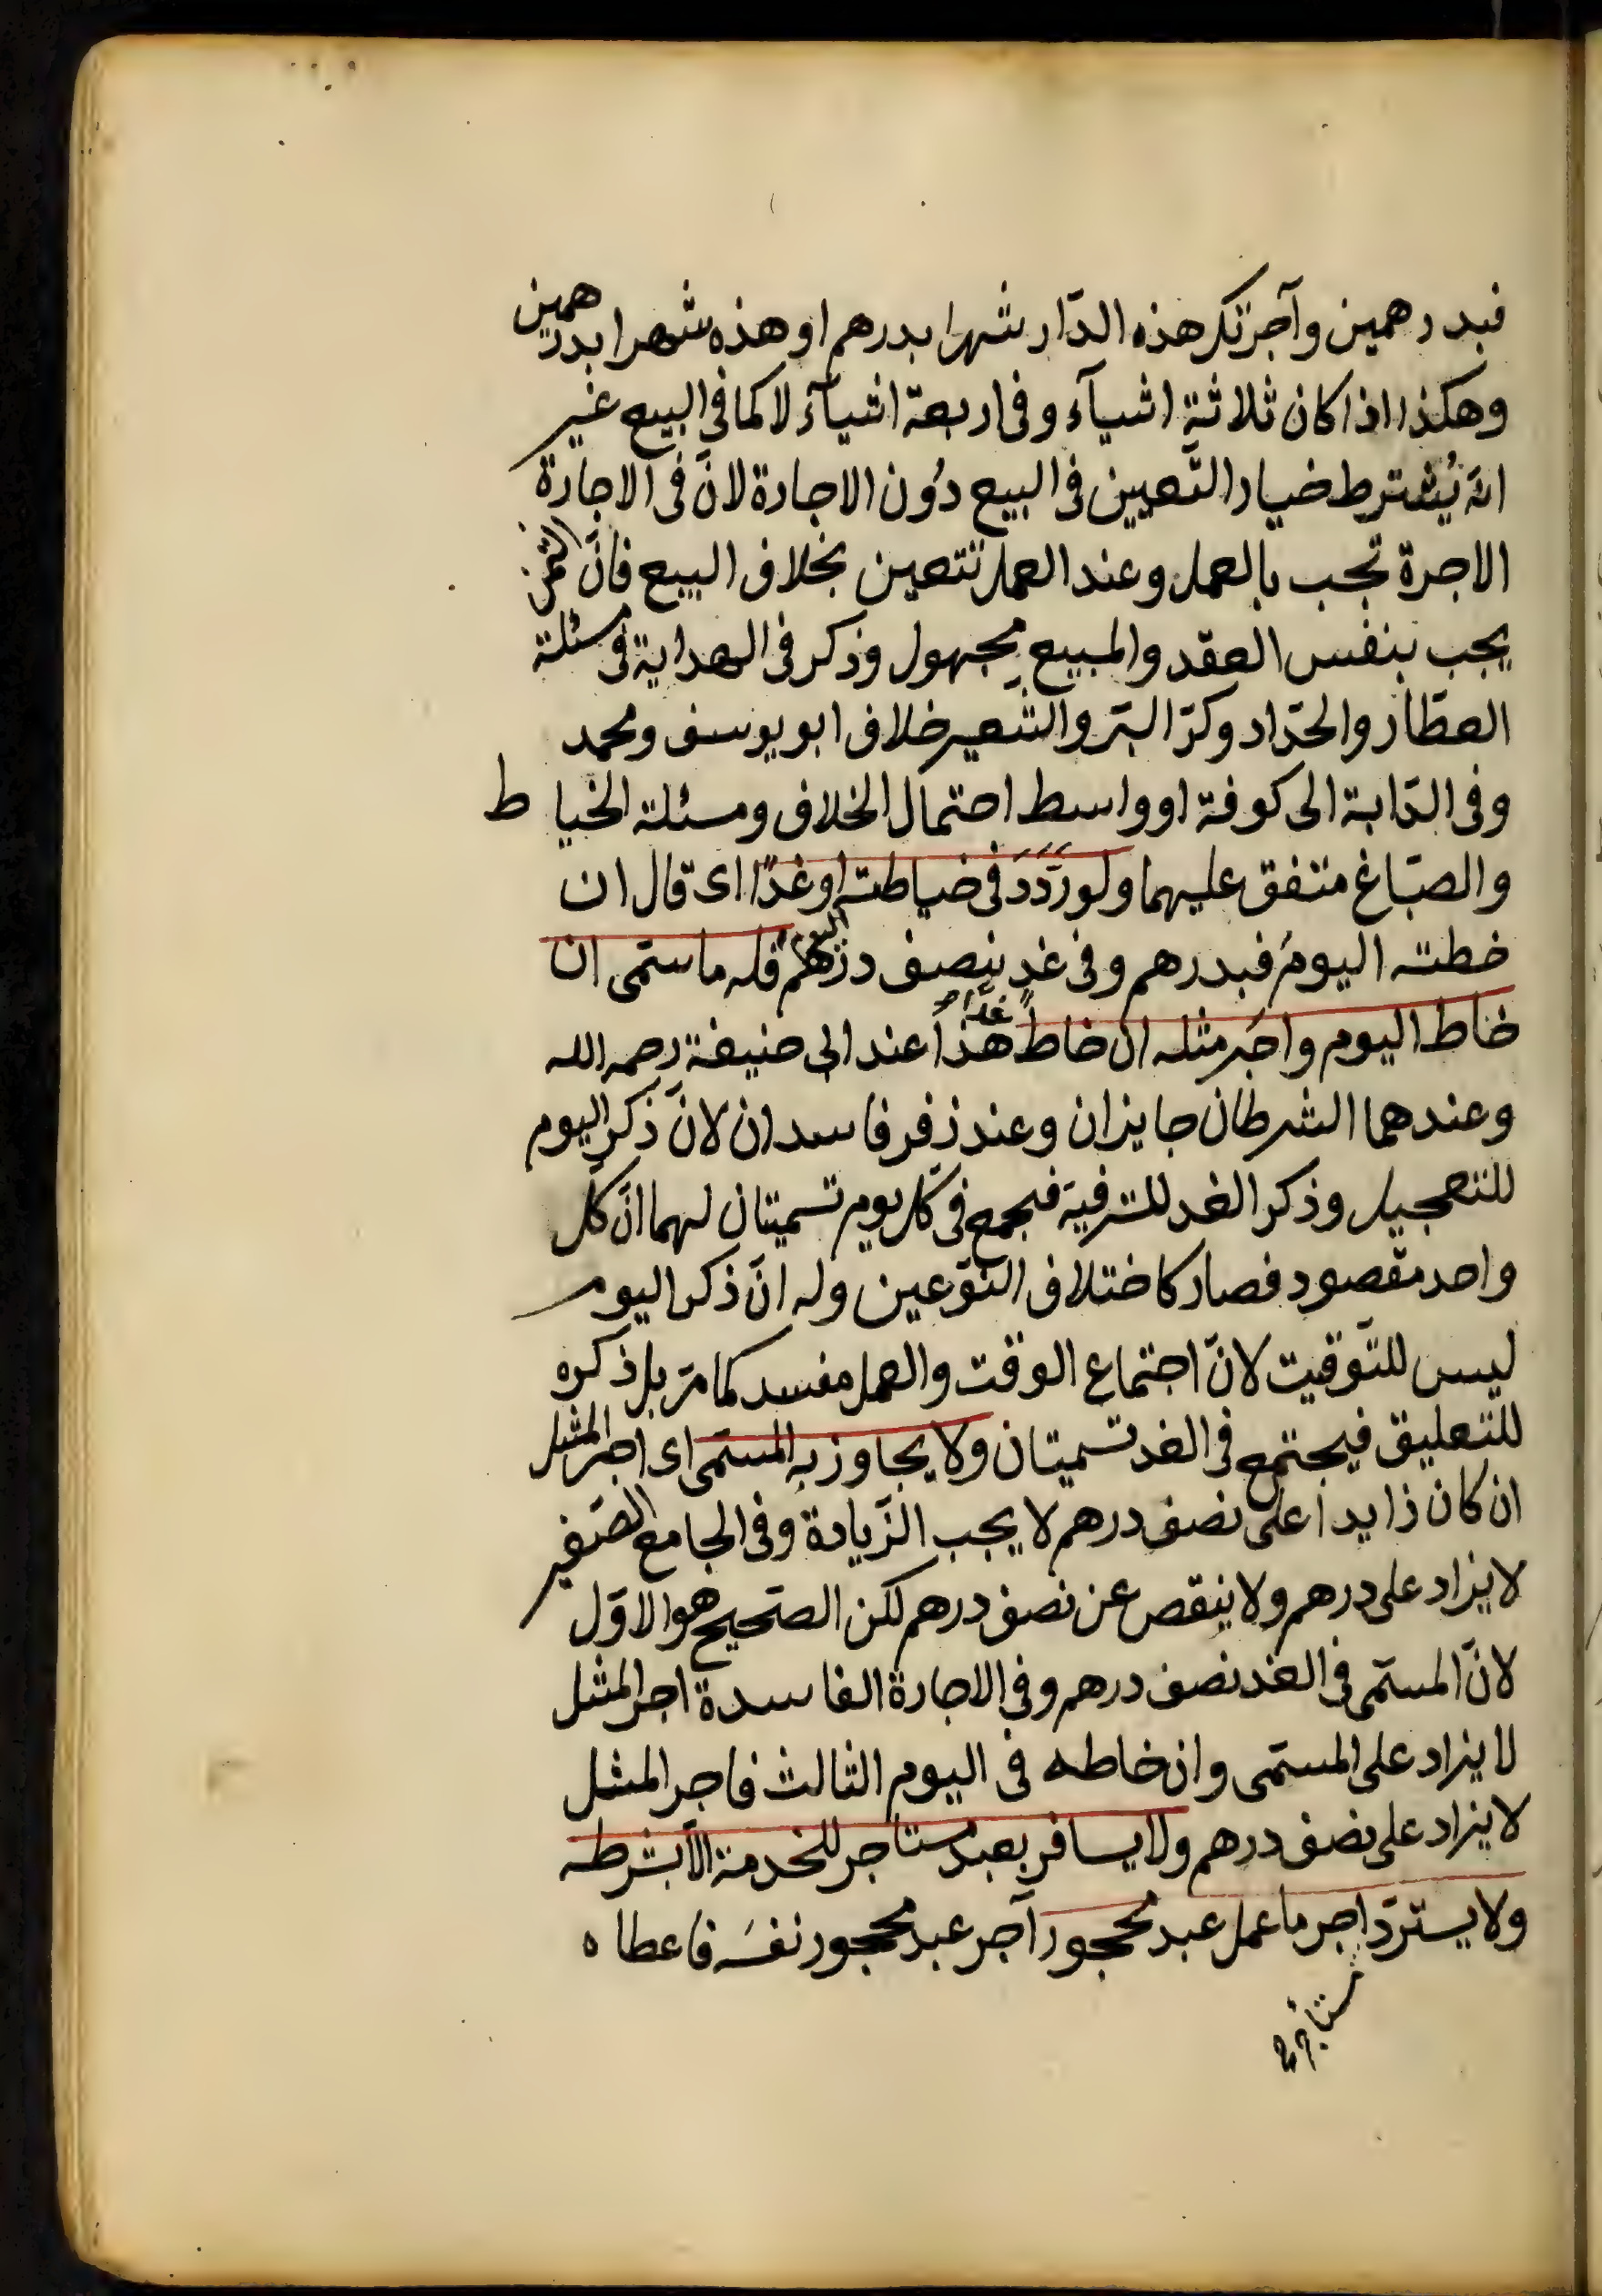 فبدرهمين وآجرتك هذه الدّار شهرا بدرهم او هذه شهرا بدرهمين
وهكذا اذا كان ثلاثة اشيآء وفى اربعة اشيآء لا كما فى البيع غير
انّه يُشترط خيار التّعيين فى البيع دُون الاجارة لانّ فى الاجارة
الاجرة تجب بالعمل وعند العمل تتعين بخلاف البيع فانّ الثمن
يجب بنفس العقد والمبيع مجهول وذكر فى الهداية فى مسئلة
العطّار والحدّاد وكرّ البرّ والشّعير خلاف ابو يوسف ومحمد
وفى الدّابة الى كوفة او واسط احتمال الخلاف ومسئلة الخياط
والصبّاغ متفق عليهما ولو ردّد فى خياطته اليوم او غدًا اى قال ان
خطته اليومَ فبدرهم وفى غدٍ بنصف درهم فله ما سمّى ان
خاط اليوم واجر مثله ان خاط غدًا هذا عند ابى حنيفة رحمه الله
وعندهما الشرطان جايزان وعند زفر فاسدان لانّ ذكر اليوم
للتعجيل وذكر الغد للترفية فيجمع فى كل يوم تسميتان لهما انّ كل
واحد مقصود فصار كاختلاف النّوعين وله انّ ذكر اليوم
ليس للتّوقيت لانّ اجتماع الوقت والعمل مفسد كما مرّ بل ذكره
للتعليق فيجتمع فى الغد تسميتان ولا يجاوز به المسمّى اى اجر المثل
ان كان زايداً على نصف درهم لا يجب الزّيادة وفى الجامع الصّغير
لا يزاد على درهم ولا ينقص عن نصف درهم لكن الصّحيح هو الاوّل
لانّ المسمّى فى الغد نصف درهم وفى الاجارة الفاسدة اجر المثل
لا يزاد على المسمّى وان خاطه فى اليوم الثالث فاجر المثل
لا يزاد على نصف درهم ولا يسافر بعبد مستاجر للخدمة الّا بشرطه
ولا يستردّ اجر ما عمل عبد محجور آجر عبد محجور نفسَه فاعطاه
مستاجره